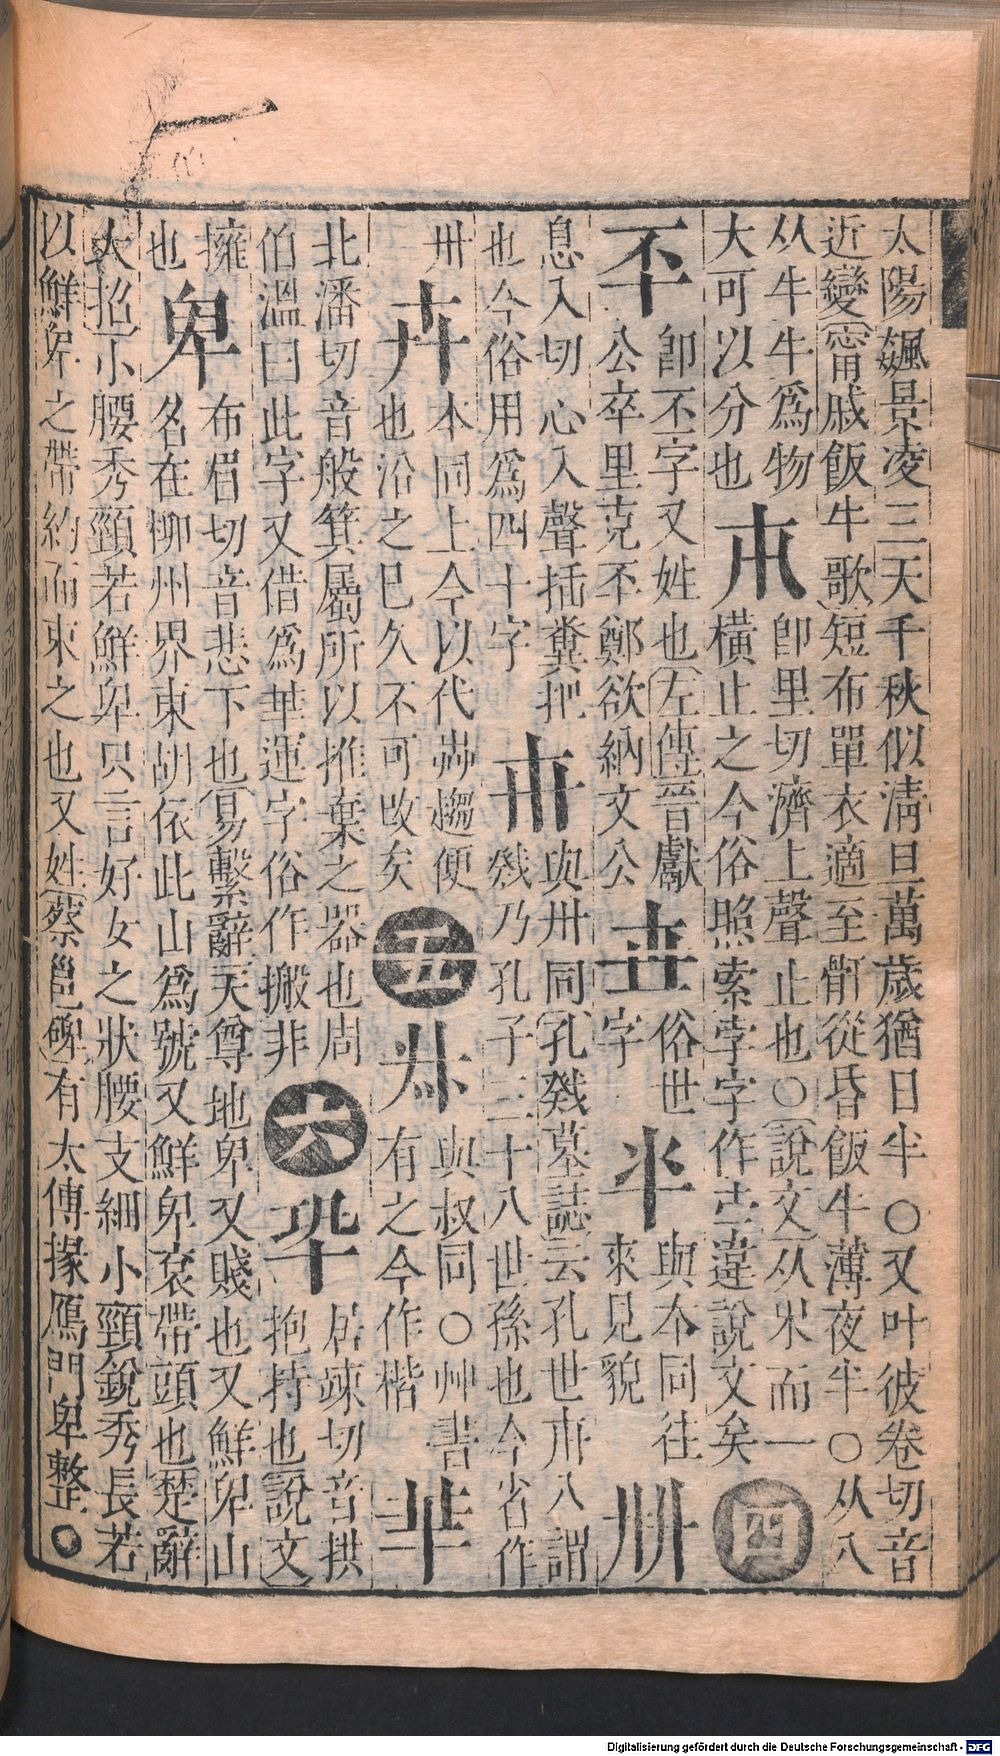 太陽飊景凌三天千秋似清旦萬歲猶日半〇又叶彼卷切音
近變甯戚飯牛歌短布單衣適至骭從昏飯牛薄夜半〇从八
从牛牛爲物
大可以分也
卽里切濟上聲止也〇說文从𣎵而一
橫止之今俗照索孛字作𠀒違說文矣
四
丕
卽不字又姓也左傳晉獻
公卒里克丕鄭欲納文公
俗世
字
與本同往
來見貌
息入切心入聲插糞把
也今俗用爲四十字
與卅同孔㲋墓誌云孔世卅八謂
㲋乃孔子三十八世孫也今省作
卅
卉
本同上今以代艸趨便
也沿之巳久不可改矣
五
與叔同〇艸書
有之今作楷
𠦒
北潘切音般箕屬所以推棄之器也周
伯溫曰此字又借爲華運字俗作搬非
六
居竦切音拱
抱持也說文
擁
也
卑
布眉切音悲下也易繫辭天尊地卑又賤也又鮮卑山
名在柳州界東胡依此山爲號又鮮卑袞帶頭也楚辭
大招小腰秀頸若鮮卑只言好女之狀腰支細小頸銳秀長若
以鮮卑之帶約而束之也又姓蔡邕碑有太傅掾鴈門卑整〇
Digitalisierung gefördert durch die Deutsche Forschungsgemeinschaft - DFG